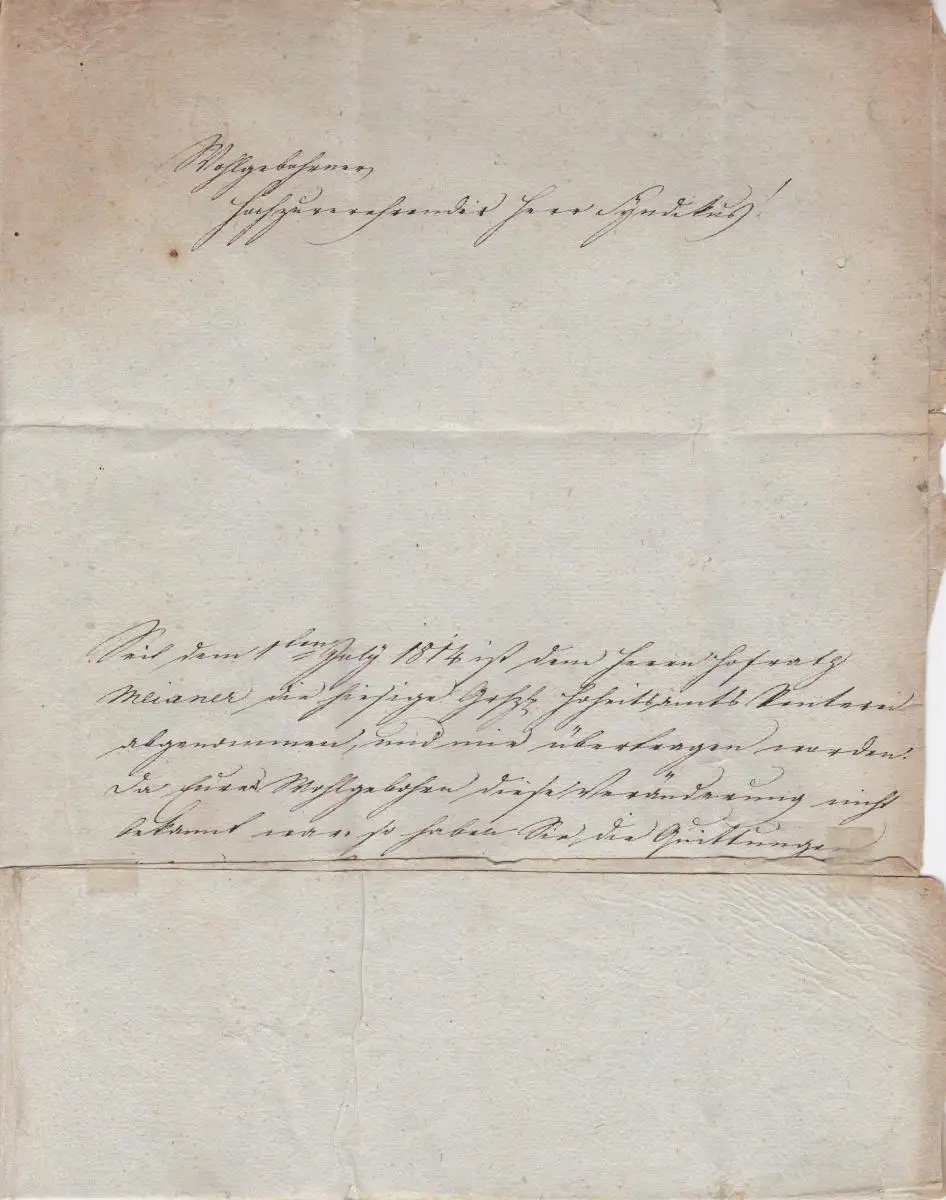 Wohlgebohrner
Hochzuverehrender Herr Syndikus!
Seit dem 1ten July 1814 ist dem Herrn Hofrath
Meixner die hiesige Hoheitsamts Renterei
abgenommen, und mir übertragen worden.
Da Euer Wohlgebohrn diese Veränderung nicht
bekannt war: so haben Sie die Quittungen